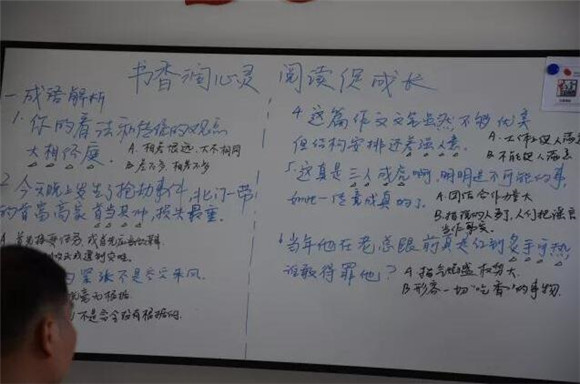 书香润心灵 阅读促成长
一.成语解析
1.你的看法和传统的观点
大相径庭。
A.相差很远,大不相同
B.差不多 相差不多
2.今天晚上发生了抢劫事件,北门一带
的首富高家首当其冲,损失最重。
A.首先接受任务
不是空穴来风。
毫无根据
不是完全没有根据的
4.这篇作文文笔虽然不够优美
但结构安排还差强人意。
A.工作让人满意
B.不能让人满意
5.这真是三人成虎啊,明明是不可能的事,
如此一传竟成真的了。
A.团结合作力量大
B.指说的人多了,人们把谣言
当作事实
6.当年他在老总眼前真是红到炙手可热,
谁敢得罪他?
A.指气焰盛 权势大
B.形容一切“吃香”的事物